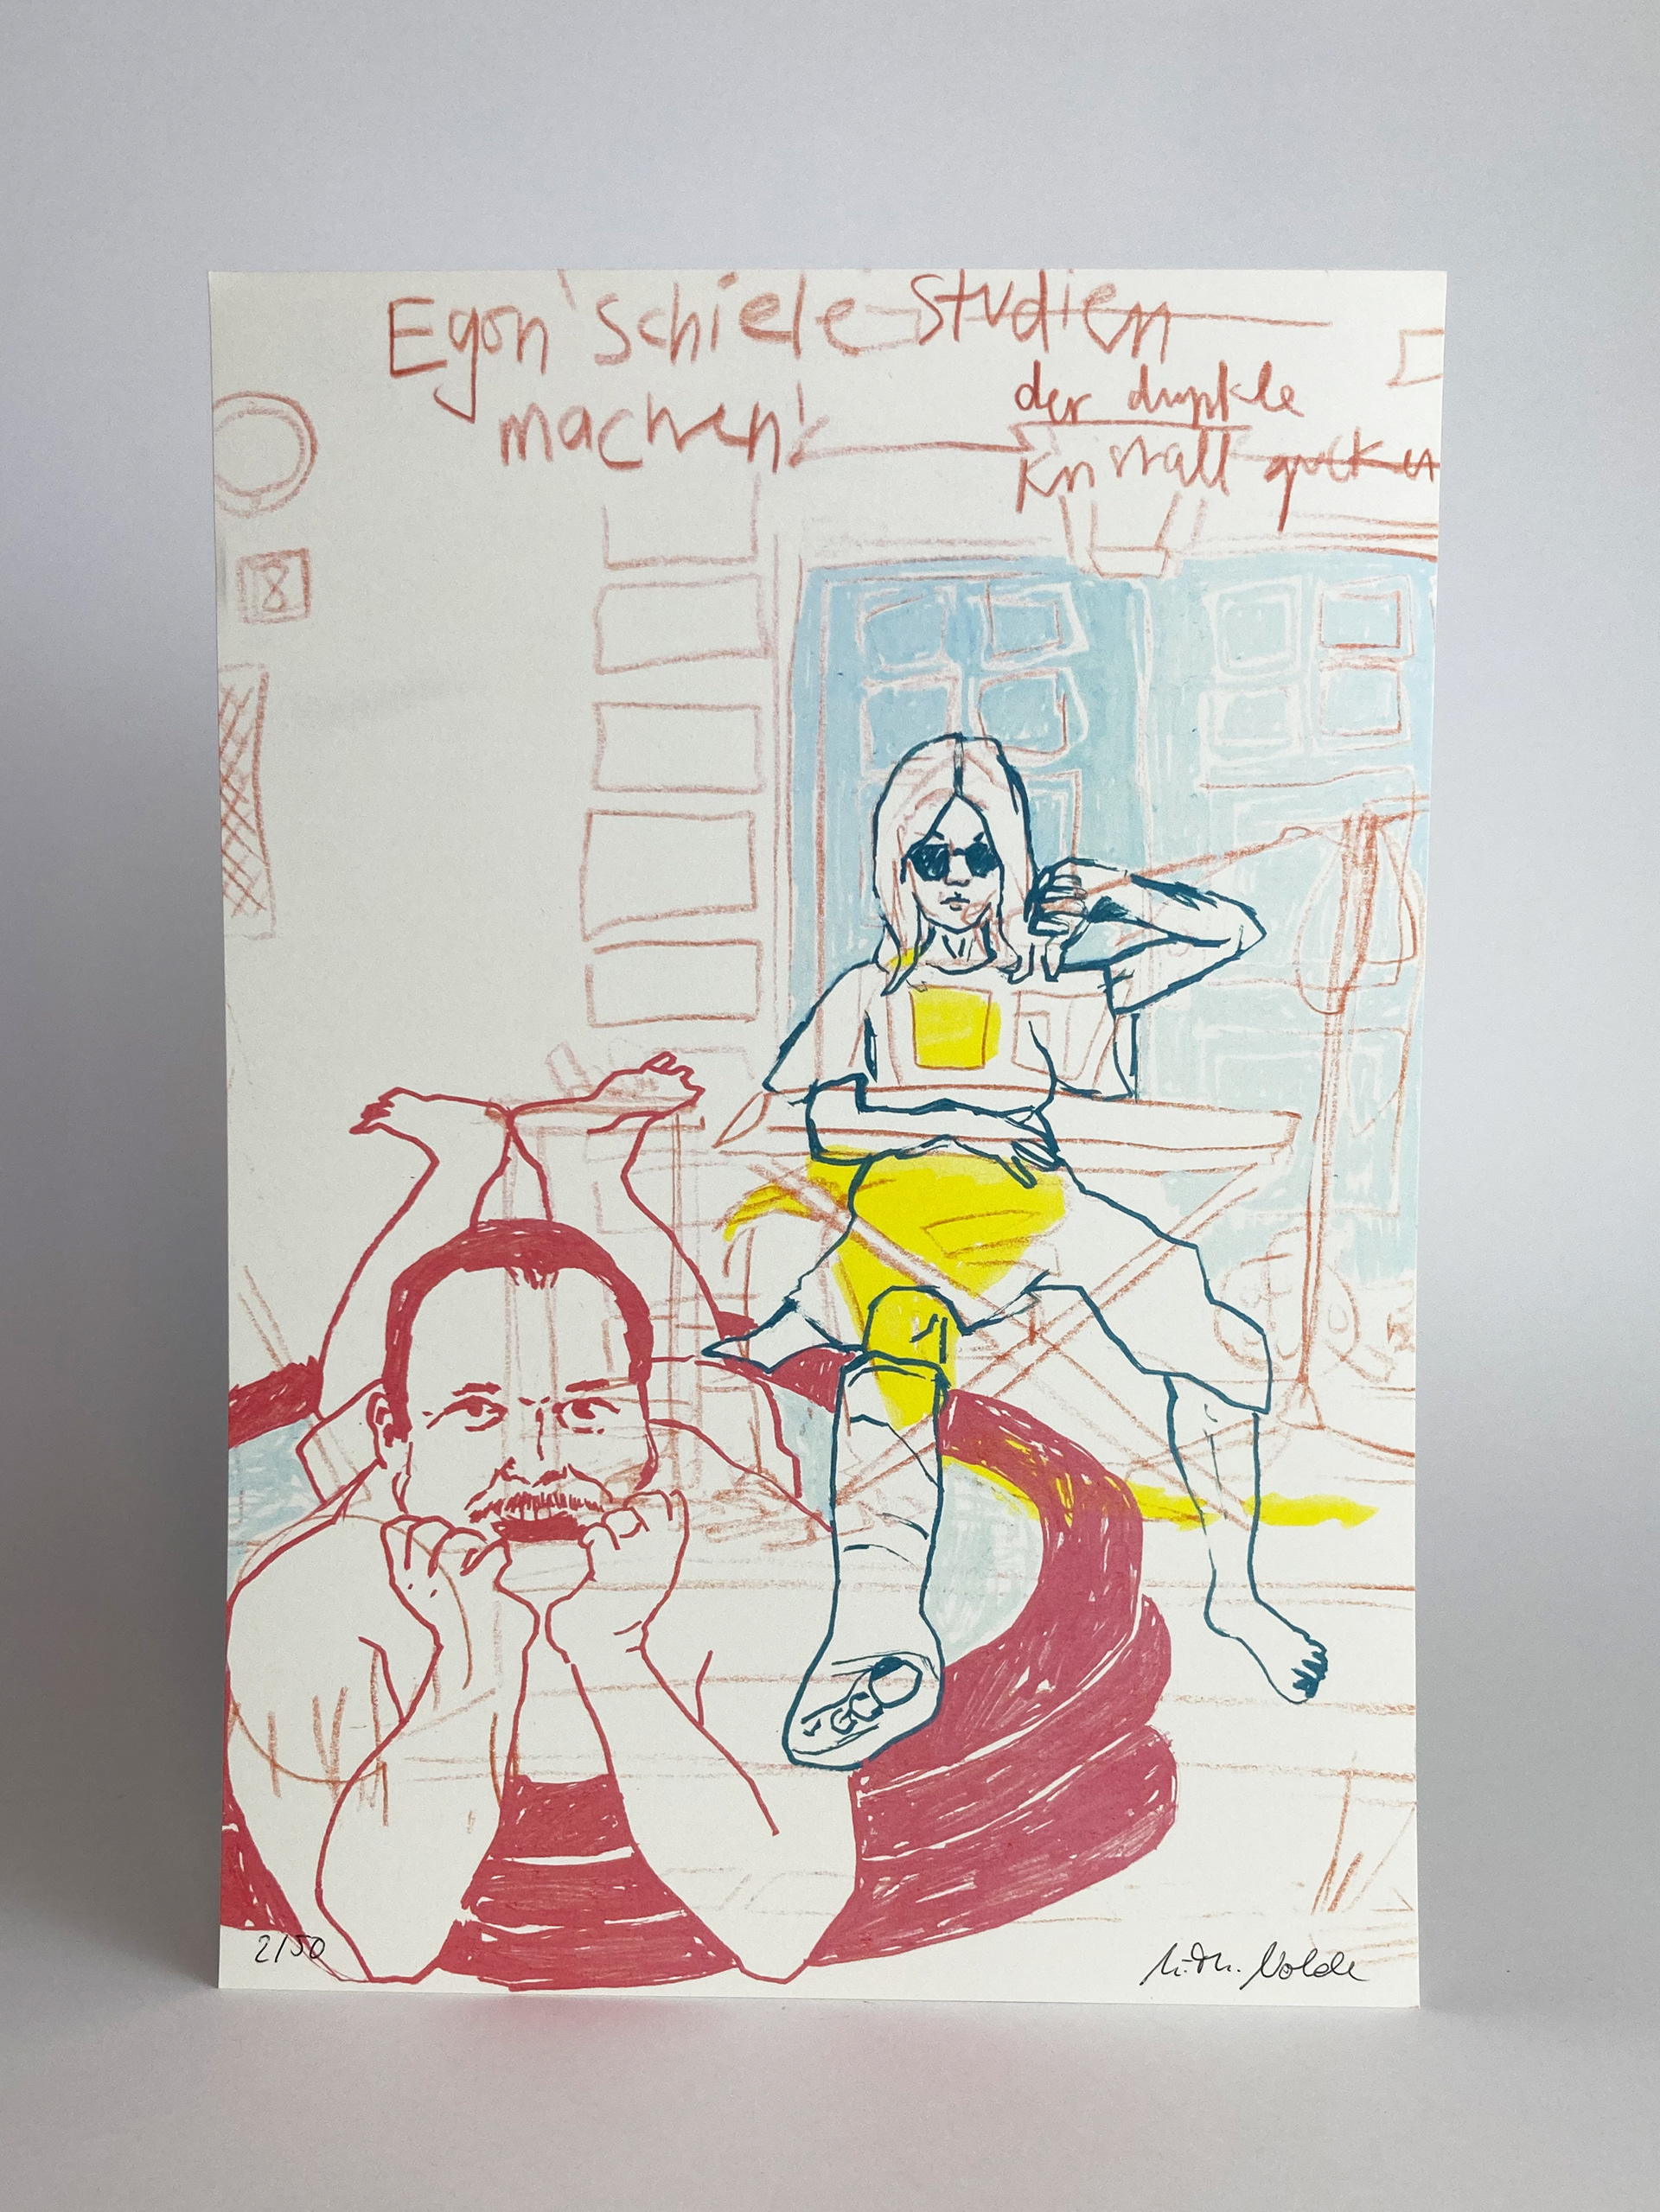 Egon Schiele Studien
machen!
der dunkle
Kristall gucken
8
2/50
Nolde